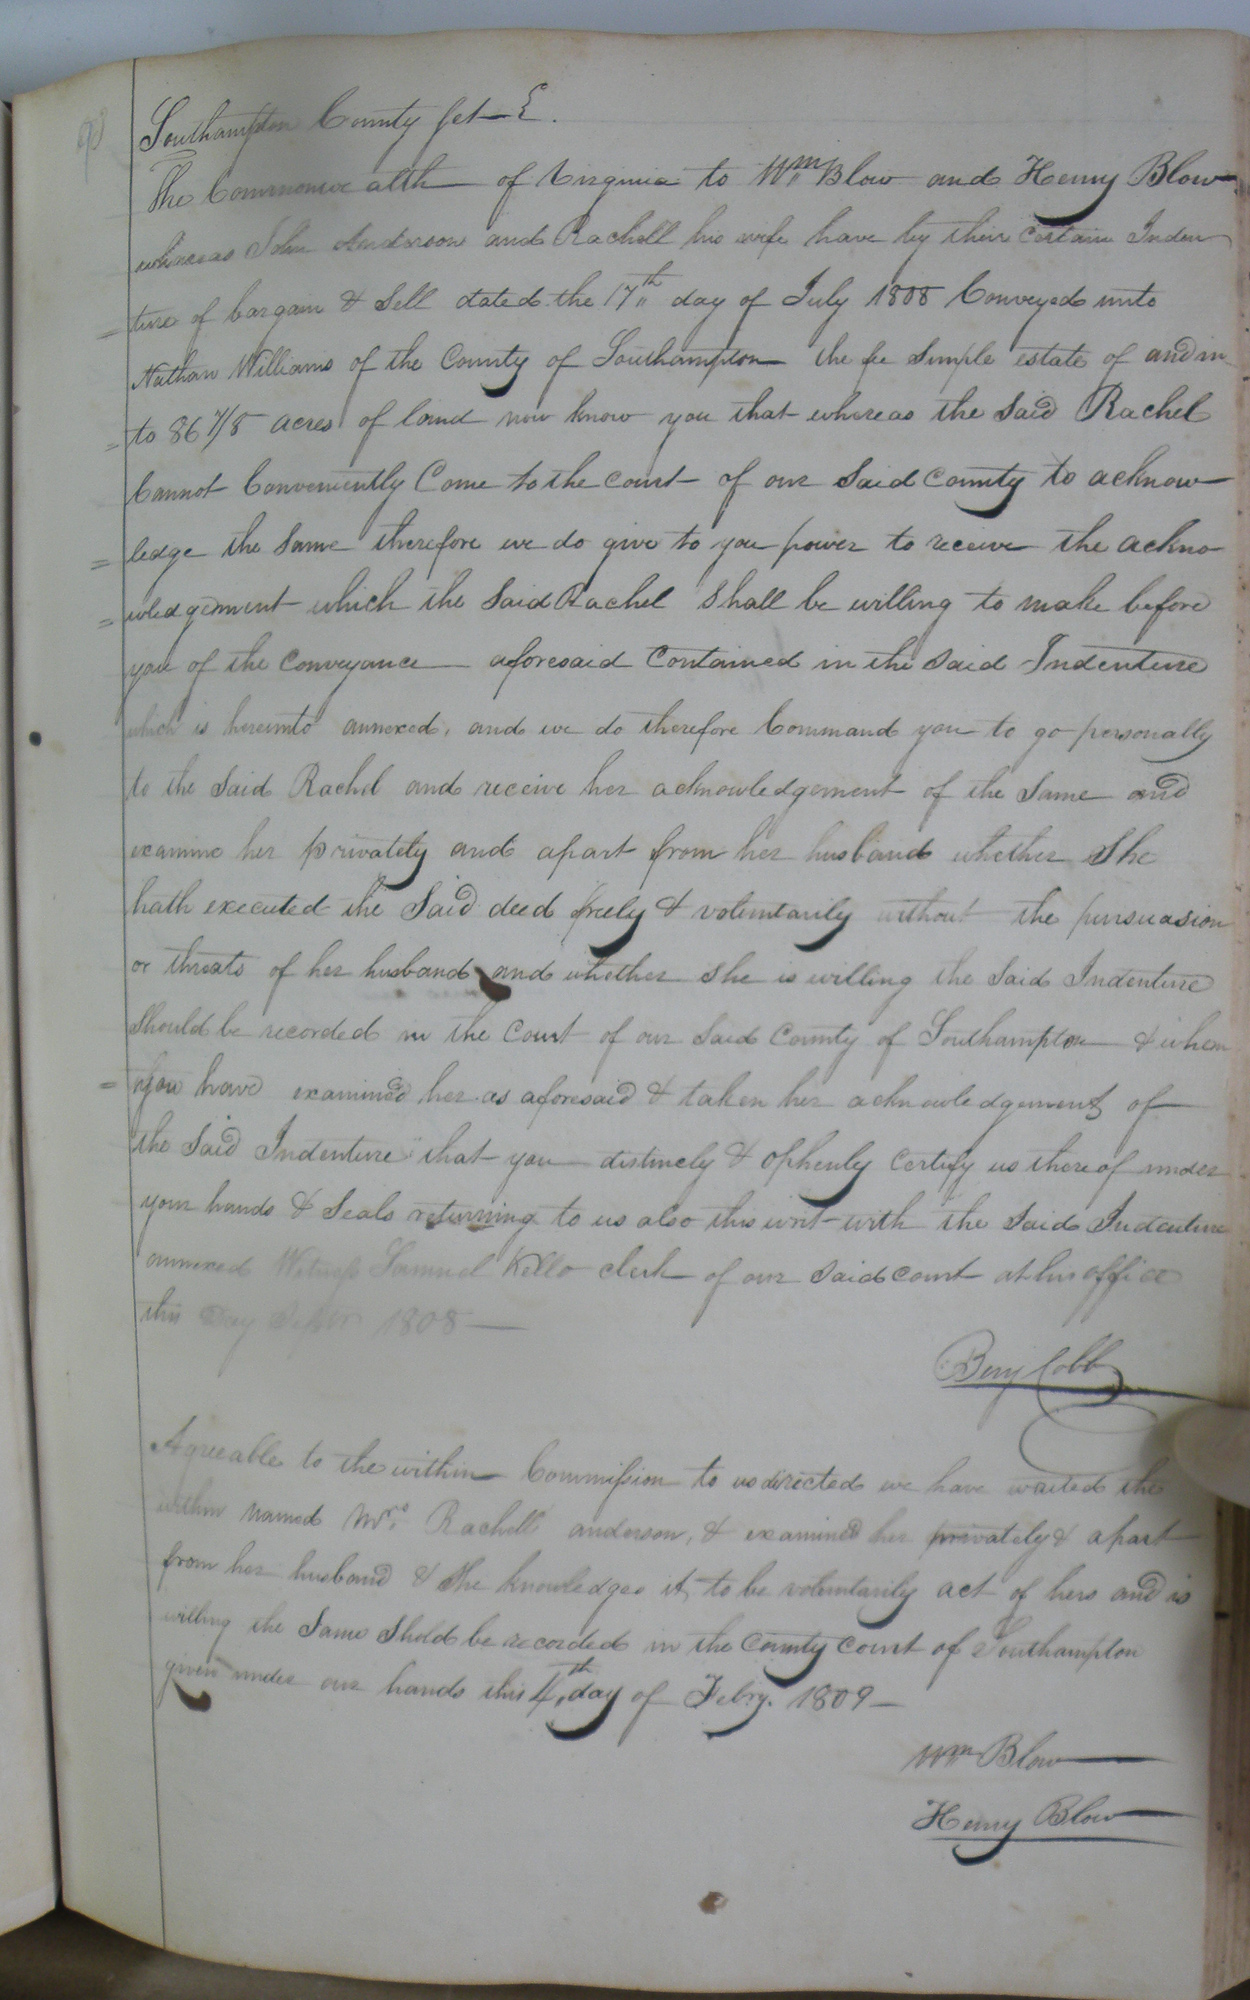 98
Southampton County Sct.
The Commonwealth of Virginia to Wm Blow and Henry Blow
whereas John Anderson and Rachell his wife have by their certain Inden
= ture of bargain & Sell dated the 17th day of July 1808 Conveyed unto
Nathan Williams of the County of Southampton the fee Simple estate of and in
= to 86 7/8 acres of land now know you that whereas the Said Rachel
Cannot Conveniently Come to the court of our Said County to acknow
= ledge the Same therefore we do give to you power to receive the ackno
= wledgement which the Said Rachel Shall be willing to make before
you of the Conveyance aforesaid Contained in the Said Indenture
which is hereunto annexed, and we do therefore Command you to go personally
to the Said Rachel and receive her acknowledgement of the Same and
examine her privately and apart from her husband whether She
hath executed the Said deed freely & voluntarily without the persuasion
or threats of her husband and whether She is willing the Said Indenture
Should be recorded in the Court of our Said County of Southampton & when
= you have examined her as aforesaid & taken her acknowledgement of
the Said Indenture that you distincly & ophenly certify us thereof under
your hands & Seals returning to us also this writ with the Said Indenture
annexed Witness Samuel Kello clerk of our Said court at his office
this Day 1808
Benj Cobb
Agreeable to the within Commission to us directed we have waited the
within named Mrs. Rachell anderson, & examined her privately & apart
from her husband & She knowledges it to be voluntarily act of hers and is
willing the Same Shold be recorded in the County Court of Southampton
given under our hands this 4th day of Febry. 1809
Wm Blow
Henry Blow